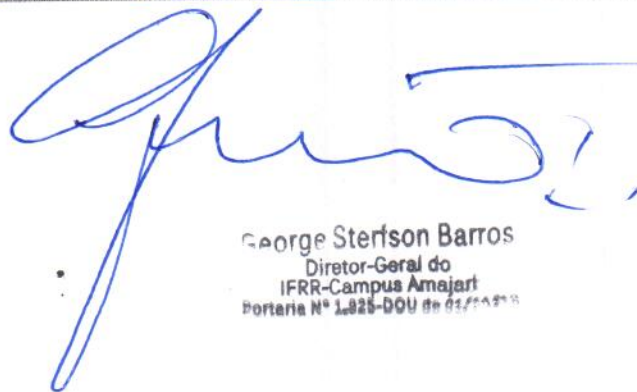 George Sterfson Barros
Diretor-Geral do
IFRR-Campus Amajari
Portaria Nº 1.825-DOU de